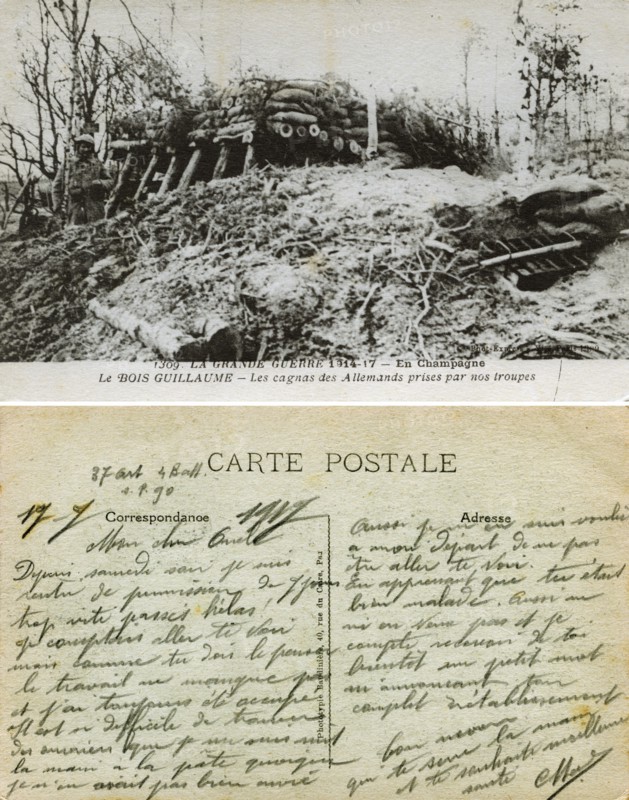 1309. LA GRANDE GUERRE 1914-17 — En Champagne
Le BOIS GUILLAUME — Les cagnas des Allemands prises par nos troupes
CARTE POSTALE
37 art 4 Batt.
s. p. 90
17-7 1917
Correspondance
Adresse
Mon cher
Depuis samedi soir je suis
rentré de permission de 7 jours
trop vite passés hélas!
Je comptais aller te voir
mais comme tu dois le penser
le travail ne manque pas
et j'ai toujours été occupé
Il est si difficile de trouver
des ouvriers que je me suis mis
la main à la pâte quoique
je n'en avait pas bien envie
Phototypie Baudinière, 40, rue du Caire, Paris
Aussi je m'en suis voulu
à mon départ de ne pas
être aller te voir.
En apprenant que tu étais
bien malade. Aussi ne
m'en veux pas et je
compte recevoir de toi
bientôt un petit mot
m'annonçant ton
complet rétablissement
bon
qui te serre la main
et te souhaite meilleure
santé